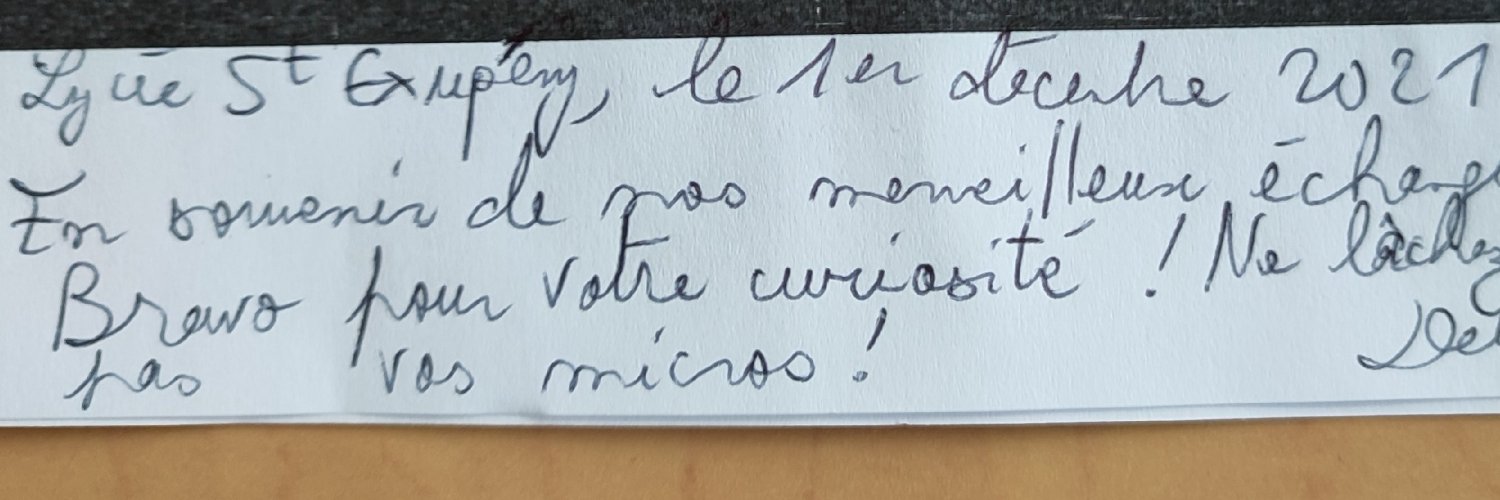 Lycée St Exupéry, le 1er décembre 2021
En souvenir de nos merveilleux échange
Bravo pour votre curiosité ! Ne lâchez
pas vos micros !